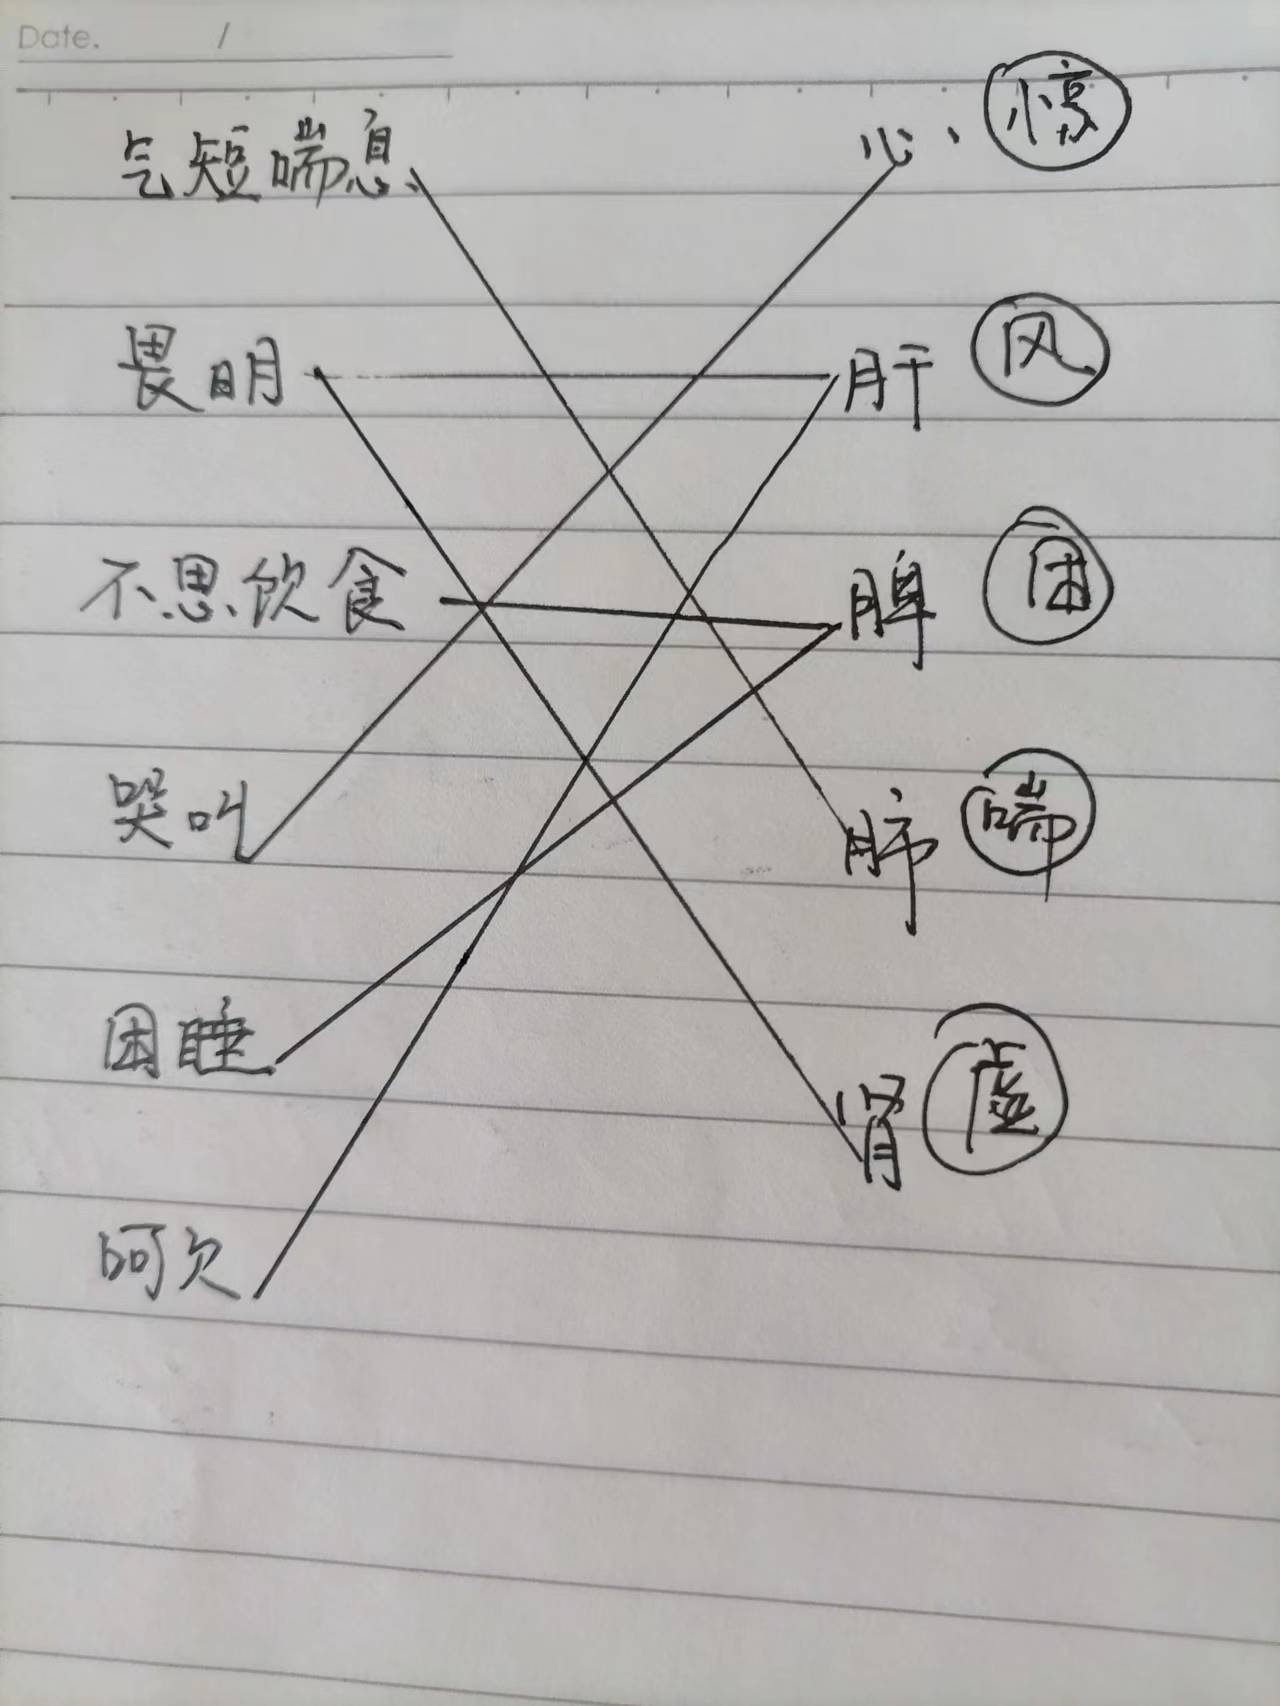 Date. /
气短喘息 心 惊
畏明 肝 风
不思饮食 脾 困
哭叫 肺 喘
困睡 肾 虚
呵欠